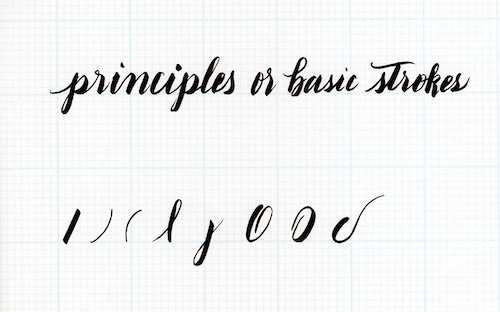 principles or basic strokes